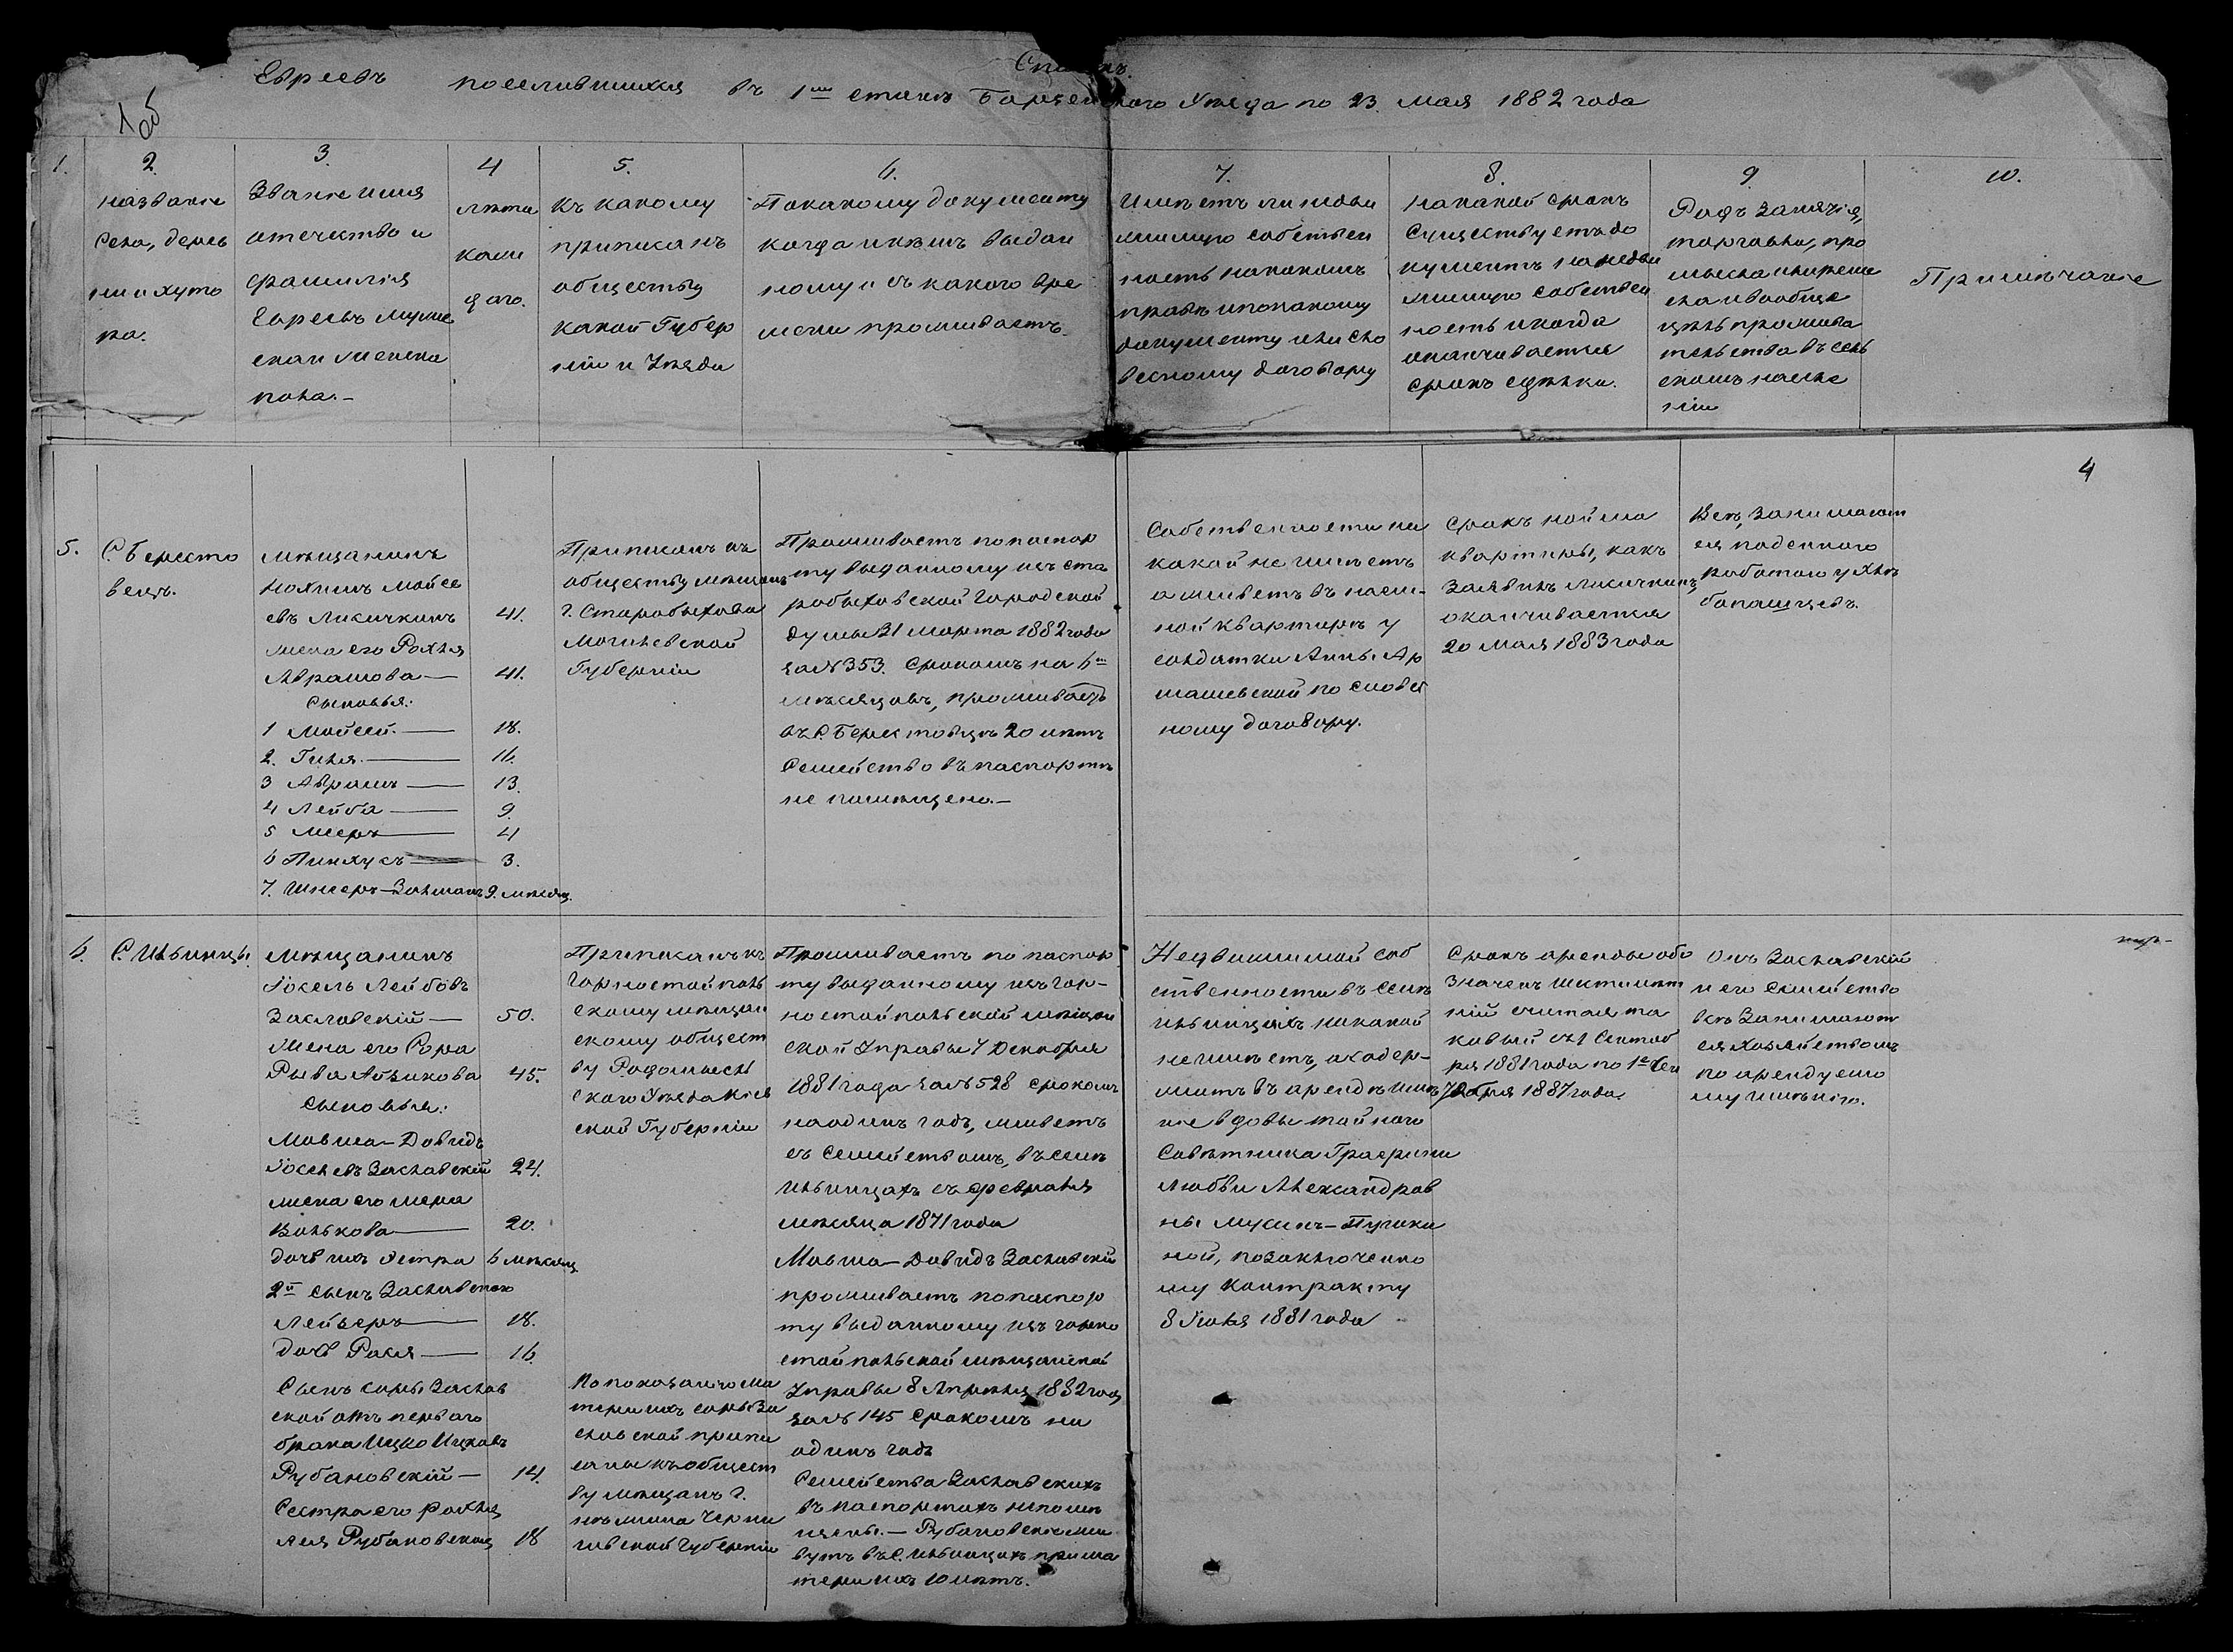 Списокъ
Евреевъ поселившихся въ 1мъ станѣ Борзенскаго Уѣзда по 23 мая 1882 года
1об
1.
2.
Названіе
села, дерев
ни и хуто
ра.
3.
Званіе имя
отечество и
фамилія
Евреевъ муже
скаго и женска
пола.–
4
лѣта
каж
даго.
5.
Къ какому
приписанъ
обществу
какой Губер
ніи и Уѣзда
6.
По какому документу
когда и кѣмъ выдан
ному и съ какого вре
мени проживаетъ.
7.
Имѣетъ ли недви
жимую собствен
ность на какомъ
правѣ и по какому
документу или сло
весному договору
8.
На какой срокъ
существуетъ до
кументъ на недви
жимую собствен
ность и когда
оканчивается
срокъ сдѣлки.
9.
Родъ занятія,
торговли, про
мысла и ремес
ла и вообще
цѣль прожива
тельства въ сель
скомъ населе
ніи
10.
Примѣчаніе
4
5.
С. Бересто
вецъ.
Мѣщанинъ
Нохимъ Мойсе
евъ Лисичкинъ 41.
жена его Рохля
Аврамова — 41.
Сыновья:
1 Мойсей. — 18.
2. Гиля. — 16.
3 Абрамъ — 13.
4 Лейба — 9.
5 Мееръ — 4
6 Пинхусъ — 3.
7. Шнееръ-Залманъ 9. мѣсяц.
Приписанъ къ
обществу мѣщанъ
г. Старобыхова
Могилевской
Губерніи
Проживаетъ по паспор
ту выданному изъ Ста
робыховской Городской
Думы 31 марта 1882 года
за № 353. Срокомъ на 6ть
мѣсяцовъ, проживаетъ
въ С. Берестовцѣ 20 лѣтъ
Семейство въ паспортѣ
не помѣщено.–
Собственности ни
какой не имѣетъ
а живетъ въ наем-
ной квартирѣ у
солдатки Анны Ар
машевской по словес
ному договору.
Срокъ найма
квартиры, какъ
заявилъ Лисичкинъ,
оканчивается
20 мая 1883 года
Всѣ, занимают
ся поденною
работою у хлѣ
бопашцевъ.
6.
С. Ильинцы.
Мѣщанинъ
Іосель Лейбовъ
Заславскій — 50.
Жена его Сора
Рыва Абзикова 45.
Сыновья:
Мовша-Довидъ
Іоселевъ Заславскій 24.
жена его Мера
Волькова — 20.
дочь ихъ Эстра 6 мѣсяц
2й сынъ Заславскаго
Лейзеръ — 18.
Дочь Рася — 16.
Сынъ Соры Заслав
ской отъ перваго
брака Ицко Ицковъ
Рубановскій — 14.
Сестра его Рохля
Лея Рубановская 18
Приписанъ къ
Горностайполь
скому мѣщан
скому общест
ву Радомысль
скаго Уѣзда Кіев
ской Губерніи
По показанію ма
тери ихъ Соры За
славской припи
саны къ общест
ву мѣщанъ г.
Нѣжина Черни
говской Губерніи
Проживаетъ по паспор
ту выданному изъ Гор-
ностайпольской мѣщан
ской Управы 7 Декабря
1881 года за № 528 срокомъ
на одинъ годъ, живетъ
съ семействомъ, въ селѣ
Ильинцахъ съ февраля
мѣсяца 1871 года
Мовша-Довидъ Заславскій
проживаетъ по паспор
ту выданному изъ Горно
стайпольской мѣщанской
Управы 8 Апрѣля 1882 года
за № 145 срокомъ на
одинъ годъ
Семейства Заславскихъ
въ паспортахъ не помѣ
щены.– Рубановскіе жи
вутъ въ С. Ильинцахъ при ма
тери ихъ 10 лѣтъ.
Недвижимой соб
ственности въ селѣ
Ильинцахъ никакой
не имѣетъ, а содер-
житъ въ арендѣ имѣ
ніе вдовы тайнаго
Совѣтника Графини
Любви Александров
ны Мусинъ-Пушки
ной, по заключенно
му контракту
8 Іюля 1881 года
Срокъ аренды обо
значенъ шестилѣт
ній считая та
ковый съ 1 Сентяб
ря 1881 года по 1е Сен
тября 1887 года.
Онъ Заславскій
и его семейство
всѣ занимают
ся хозяйствомъ
по арендуемо
му имѣнію.